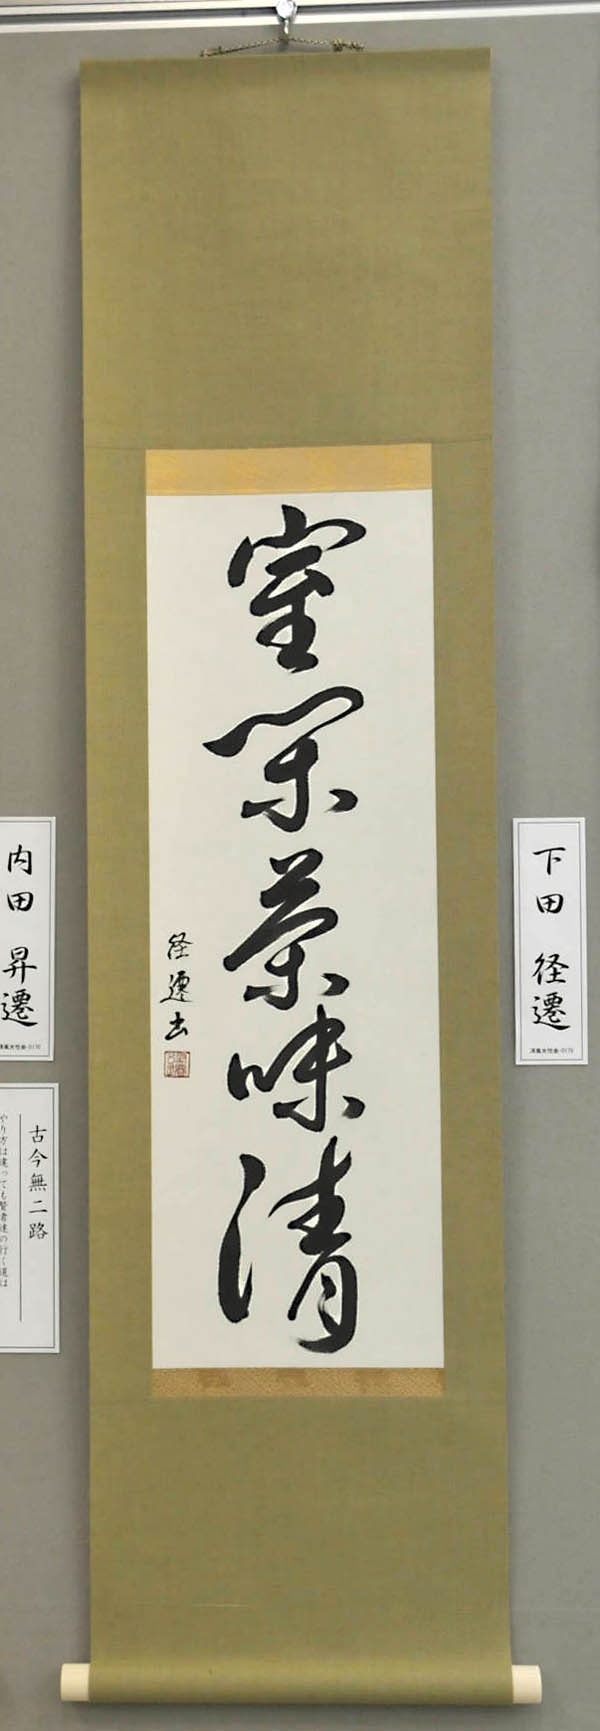 室閑茶味清
径遷書
下田 径遷
内田 昇遷
古今無二路
やり方は違っても賢者達の行く道は